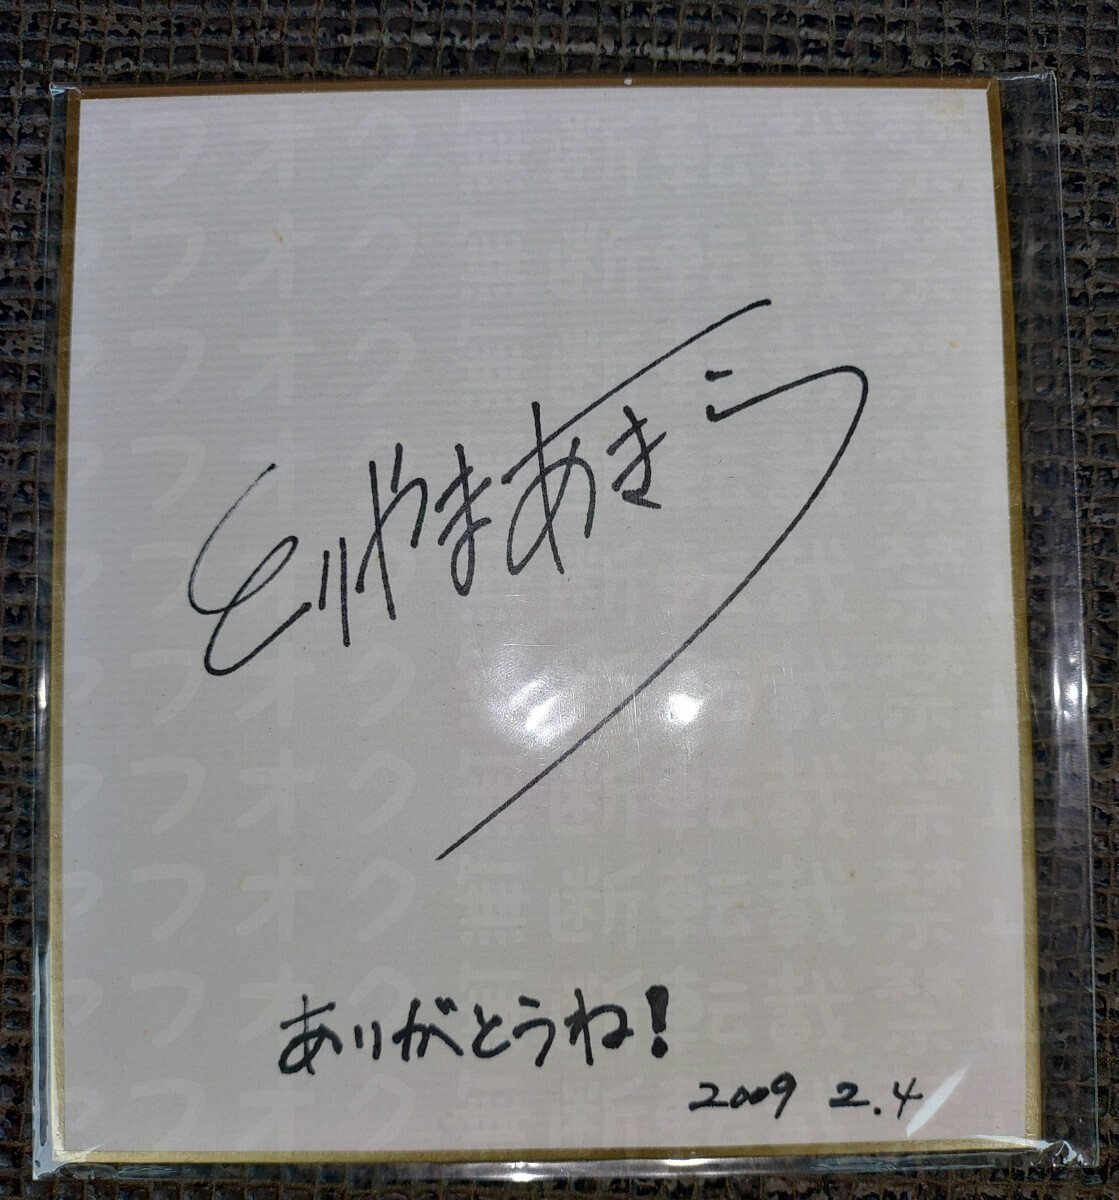 とりやまあきら
ありがとうね!
2009 2.4
ヤフオク無断転載禁止
ヤフオク無断転載禁止
ヤフオク無断転載禁止
ヤフオク無断転載禁止
ヤフオク無断転載禁止
ヤフオク無断転載禁止
ヤフオク無断転載禁止
ヤフオク無断転載禁止
ヤフオク無断転載禁止
ヤフオク無断転載禁止